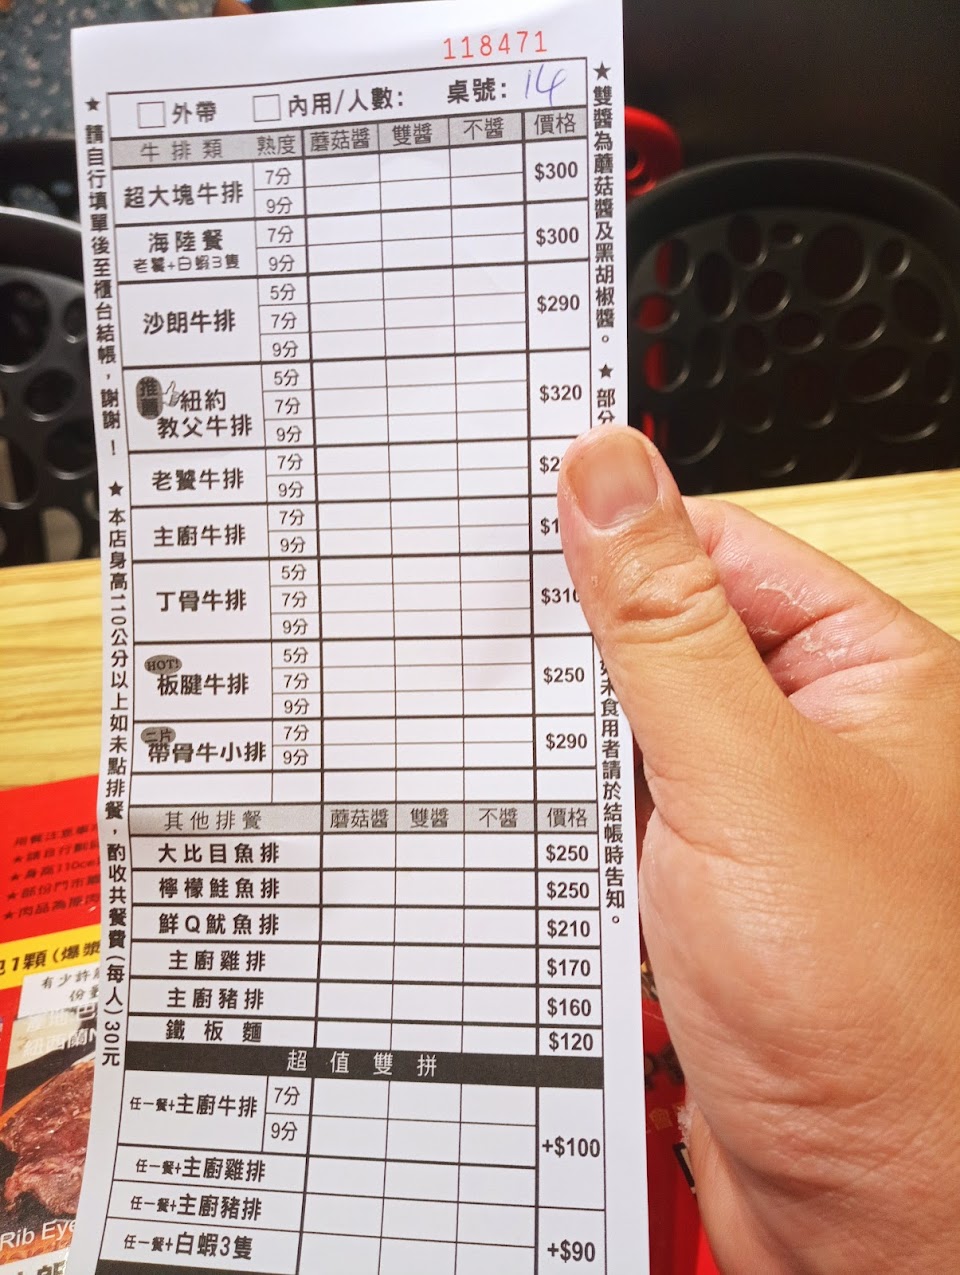 118471
外帶 內用/人數: 桌號: 14
牛排類 熟度 蘑菇醬 雙醬 不醬 價格
超大塊牛排 7分 9分 $300
海陸餐 老饕+白蝦3隻 7分 9分 $300
沙朗牛排 5分 7分 9分 $290
推薦 紐約教父牛排 5分 7分 9分 $320
老饕牛排 7分 9分
主廚牛排 7分 9分
丁骨牛排 5分 7分 9分 $310
HOT! 板腱牛排 5分 7分 9分 $250
二片 帶骨牛小排 7分 9分 $290
其他排餐 蘑菇醬 雙醬 不醬 價格
大比目魚排 $250
檸檬鮭魚排 $250
鮮Q魷魚排 $210
主廚雞排 $170
主廚豬排 $160
鐵板麵 $120
超值雙拼
任一餐+主廚牛排 7分 9分 +$100
任一餐+主廚雞排
任一餐+主廚豬排
任一餐+白蝦3隻 +$90
★請自行填單後至櫃台結帳，謝謝！ ★本店身高110公分以上如未點排餐，酌收共餐費(每人)30元
★雙醬為蘑菇醬及黑胡椒醬。 ★部分
未食用者請於結帳時告知。
1顆(爆漿
有少許
Rib Eye